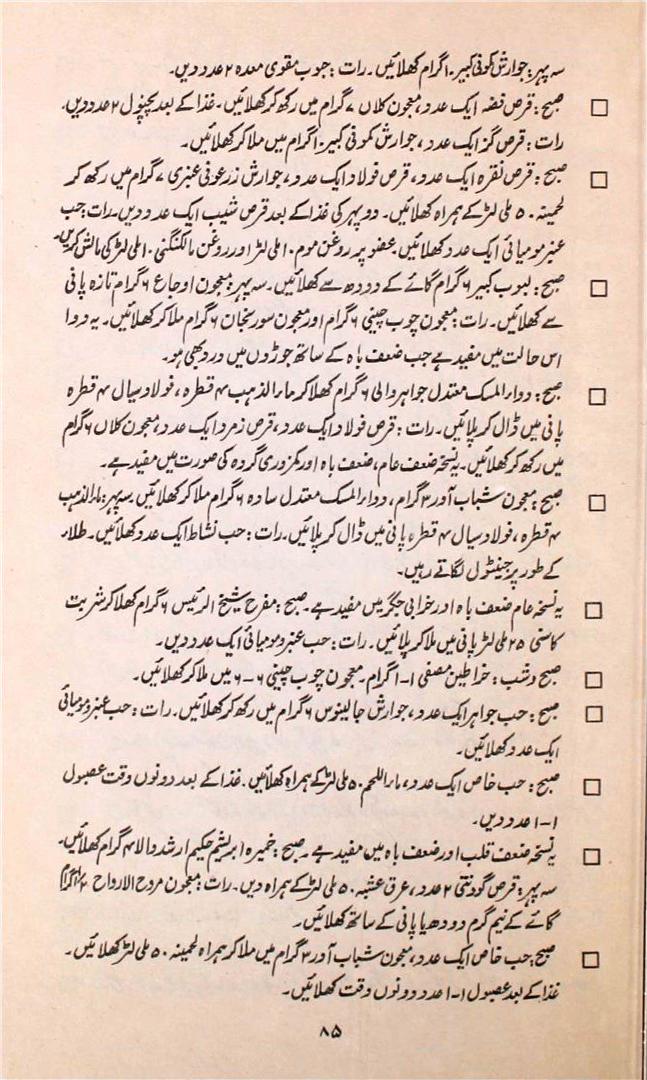 سہ پہر: جوارش کمونی کبیر ۱۰ گرام کھلائیں۔ رات: حبوب مقوی معدہ ۲ عدد دیں۔
□ صبح: قرص فضہ ایک عدد، معجون کلاں ۷ گرام میں رکھ کر کھلائیں۔ غذا کے بعد پچنول ۲ عدد دیں۔
رات: قرص گز ایک عدد، جوارش کمونی کبیر ۱۰ گرام میں ملا کر کھلائیں۔
□ صبح: قرص نقرہ ایک عدد، قرص فولاد ایک عدد، جوارش زرعونی عنبری ۷ گرام میں رکھ کر
لحمینہ ۵۰ ملی لٹر کے ہمراہ کھلائیں۔ دوپہر کی غذا کے بعد قرص شیب ایک عدد دیں۔ رات: حب
عنبر مومیائی ایک عدد کھلائیں۔ عضو پر روغن موم ۱۰ ملی لٹر اور روغن مالکنگنی ۱۰ ملی لٹر کی مالش کریں۔
□ صبح: لبوب کبیر ۶ گرام گائے کے دودھ سے کھلائیں۔ سہ پہر: معجون اوجاع ۶ گرام تازہ پانی
سے کھلائیں۔ رات: معجون چوب چینی ۶ گرام اور معجون سورنجان ۶ گرام ملا کر کھلائیں۔ یہ دوا
اس حالت میں مفید ہے جب ضعف باہ کے ساتھ جوڑوں میں درد بھی ہو۔
□ صبح: دوار المسک معتدل جواہر والی ۶ گرام کھلا کر مار الذہب ۴ قطرہ، فولاد سیال ۴ قطرہ
پانی میں ڈال کر پلائیں۔ رات: قرص فولاد ایک عدد، قرص زمرد ایک عدد، معجون کلاں ۶ گرام
میں رکھ کر کھلائیں۔ یہ نسخہ ضعف عام، ضعف باہ اور کمزوری گردہ کی صورت میں مفید ہے۔
□ صبح: معجون شباب آور ۳ گرام، دوار المسک معتدل سادہ ۶ گرام ملا کر کھلائیں۔ سہ پہر: مار الذہب
۴ قطرہ، فولاد سیال ۴ قطرہ پانی میں ڈال کر پلائیں۔ رات: حب نشاط ایک عدد کھلائیں۔ طلاء
کے طور پر جینٹول لگاتے رہیں۔
□ یہ نسخہ عام ضعف باہ اور خرابی جگر میں مفید ہے۔ صبح: مفرح شیخ الرئیس ۶ گرام کھلا کر شربت
کاسنی ۲۵ ملی لٹر پانی میں ملا کر پلائیں۔ رات: حب عنبر مومیائی ایک عدد دیں۔
□ صبح و شب: خراطین مصفی ۱-۱ گرام۔ معجون چوب چینی ۶-۶ میں ملا کر کھلائیں۔
□ صبح: حب جواہر ایک عدد، جوارش جالینوس ۶ گرام میں رکھ کر کھلائیں۔ رات: حب عنبر مومیائی
ایک عدد کھلائیں۔
□ صبح: حب خاص ایک عدد، مار اللحم ۵۰ ملی لٹر کے ہمراہ کھلائیں۔ غذا کے بعد دونوں وقت عصبول
۱-۱ عدد دیں۔
□ یہ نسخہ ضعف قلب اور ضعف باہ میں مفید ہے۔ صبح: خمیرہ ابریشم حکیم ارشد والا ۴ گرام کھلائیں۔
سہ پہر: قرص گودنتی ۲ عدد، عرق عشبہ ۵۰ ملی لٹر کے ہمراہ دیں۔ رات: معجون مروح الارواح گرام
گائے کے نیم گرم دودھ یا پانی کے ساتھ کھلائیں۔
□ صبح: حب خاص ایک عدد، معجون شباب آور ۳ گرام میں ملا کر ہمراہ لحمینہ ۵۰ ملی لٹر کھلائیں۔
غذا کے بعد عصبول ۱-۱ عدد دونوں وقت کھلائیں۔
۸۵